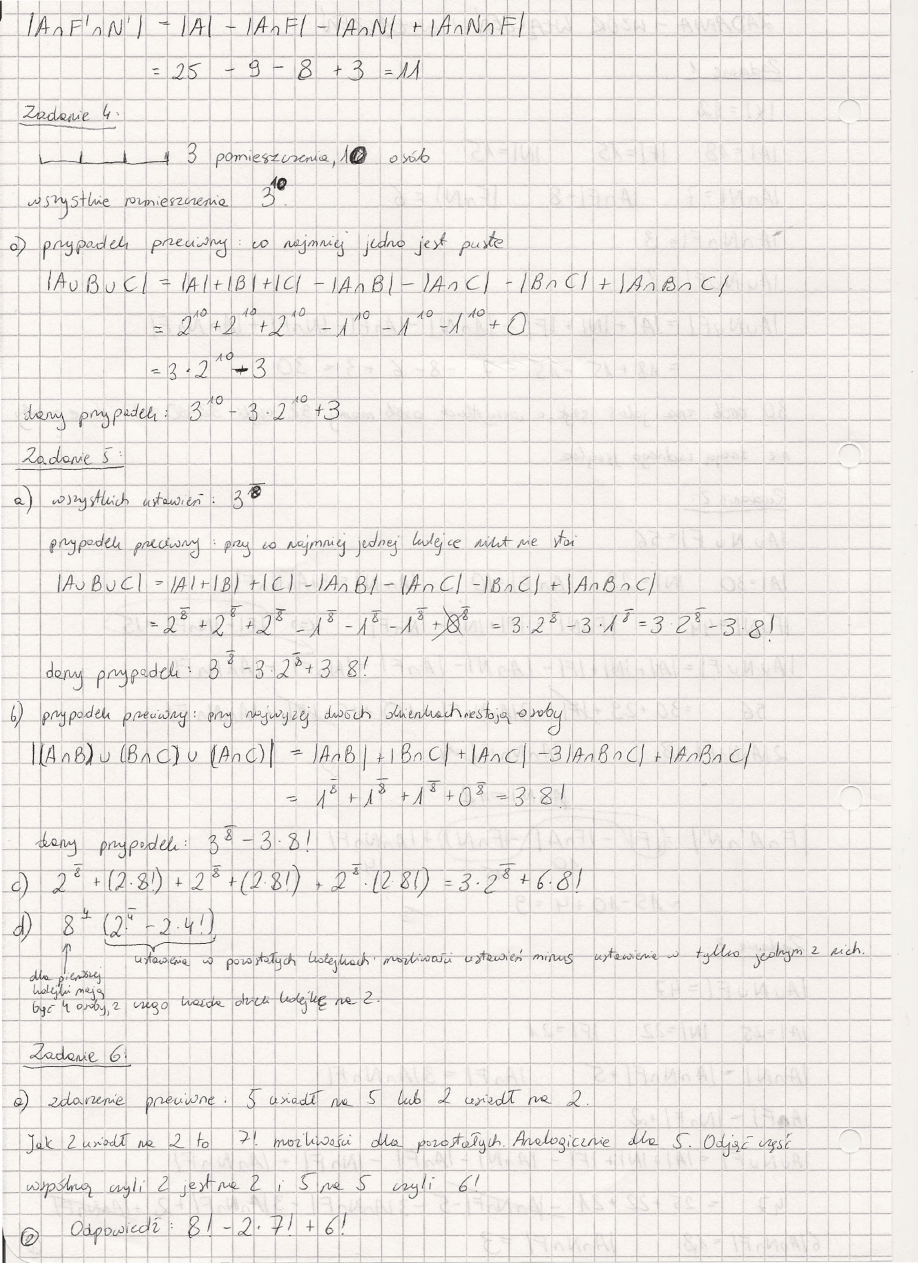 |A∩F'∩N'| = |A| - |A∩F| - |A∩N| + |A∩N∩F|
= 25 - 9 - 8 + 3 = 11
Zadanie 4:
3 pomieszczenia, 10 osób
wszystkie rozmieszczenia 3^10.
a) przypadek przeciwny: co najmniej jedno jest puste
|A∪B∪C| = |A|+|B|+|C| - |A∩B| - |A∩C| - |B∩C| + |A∩B∩C|
= 2^10 + 2^10 + 2^10 - 1^10 - 1^10 - 1^10 + 0
= 3·2^10 - 3
dany przypadek: 3^10 - 3·2^10 + 3
Zadanie 5:
a) wszystkich ustawień: 3^8̅
przypadek przeciwny: przy co najmniej jednej kolejce nikt nie stoi
|A∪B∪C| = |A|+|B|+|C| - |A∩B| - |A∩C| - |B∩C| + |A∩B∩C|
= 2^8̅ + 2^8̅ + 2^8̅ - 1^8̅ - 1^8̅ - 1^8̅ + 0^8̅ = 3·2^8̅ - 3·1^8̅ = 3·2^8̅ - 3·8!
dany przypadek: 3^8̅ - 3·2^8̅ + 3·8!
b) przypadek przeciwny: przy najwyżej dwóch okienkach nie stoją osoby
|(A∩B) ∪ (B∩C) ∪ (A∩C)| = |A∩B| + |B∩C| + |A∩C| - 3|A∩B∩C| + |A∩B∩C|
= 1^8̅ + 1^8̅ + 1^8̅ + 0^8̅ = 3·8!
dany przypadek: 3^8̅ - 3·8!
c) 2^8̅ + (2·8!) + 2^8̅ + (2·8!) + 2^8̅ · (2·8!) = 3·2^8̅ + 6·8!
d) 8^4 (2^4̅ - 2·4!)
ustawienia w pozostałych kolejkach: możliwości ustawień minus ustawienie w tylko jednym z nich.
dla pierwszej
kolejki mają
być 4 osoby, z czego każda dzieli kolejkę na 2.
Zadanie 6:
a) zdarzenie przeciwne: 5 usiadł na 5 lub 2 usiadł na 2.
Jak 2 usiadł na 2 to 7! możliwości dla pozostałych. Analogicznie dla 5. Odjąć część
wspólną czyli 2 jest na 2 i 5 na 5 czyli 6!
Odpowiedź: 8! - 2·7! + 6!
②